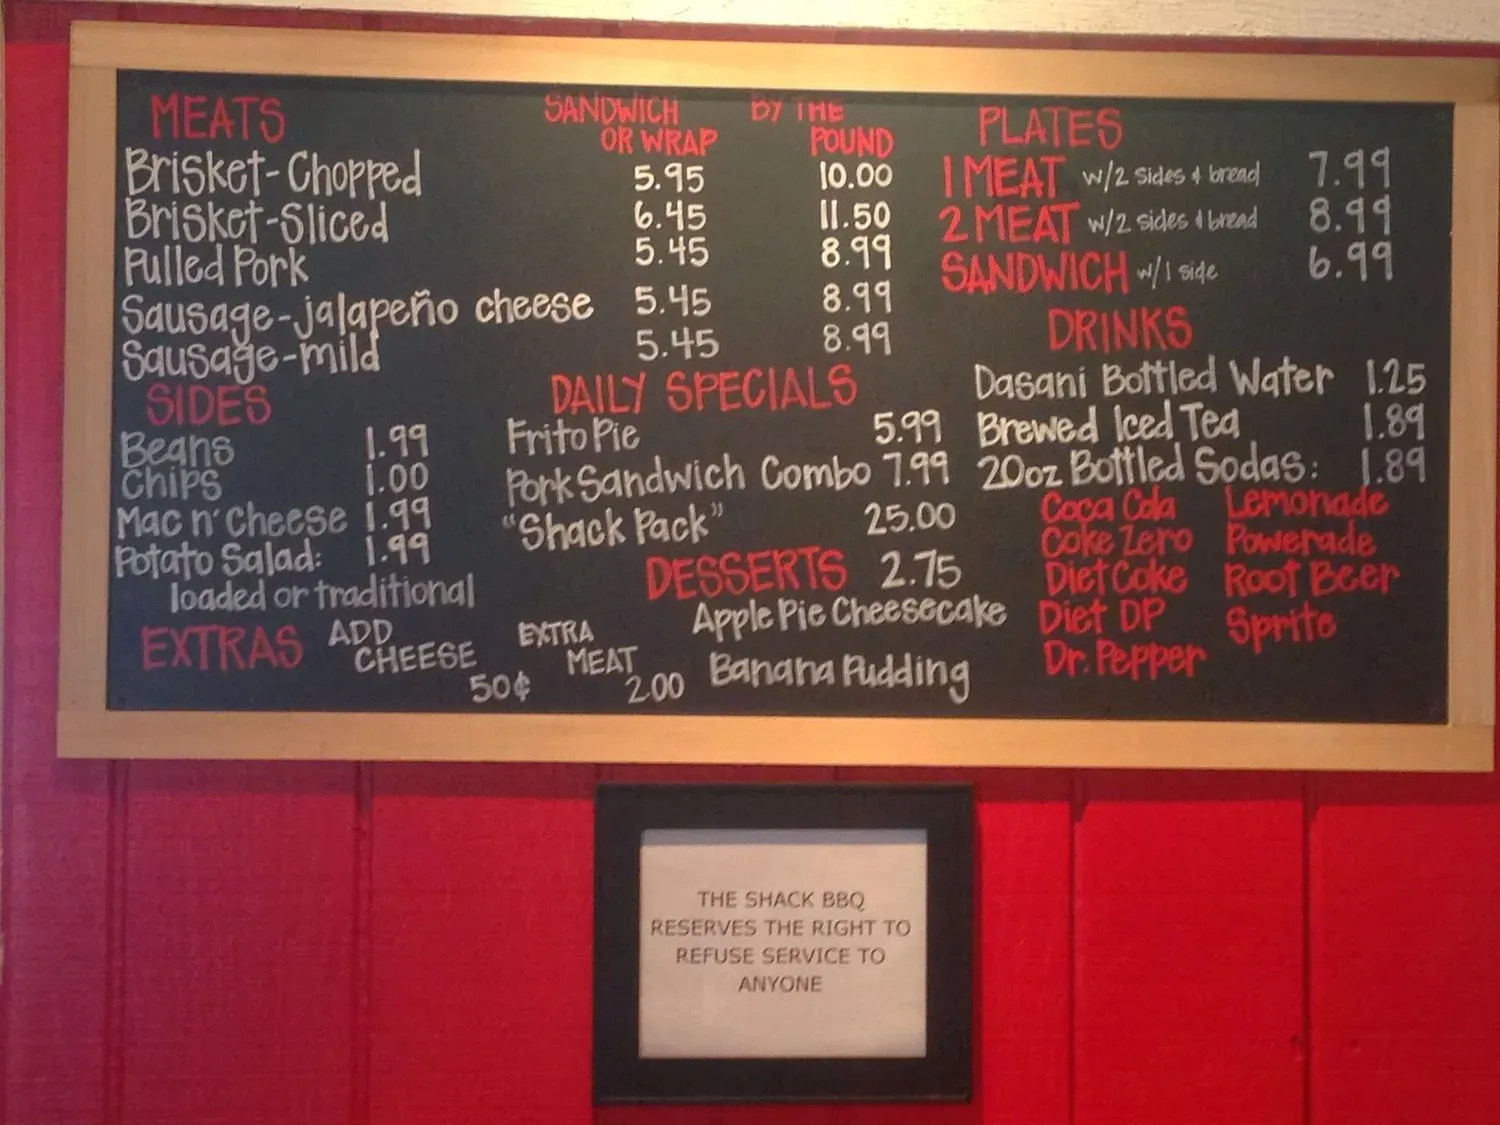 MEATS SANDWICH OR WRAP BY THE POUND
Brisket-Chopped 5.95 10.00
Brisket-Sliced 6.45 11.50
Pulled Pork 5.45 8.99
Sausage-jalapeño cheese 5.45 8.99
Sausage-mild 5.45 8.99
SIDES
Beans 1.99
Chips 1.00
Mac n' Cheese 1.99
Potato Salad: 1.99
loaded or traditional
EXTRAS ADD CHEESE 50¢ EXTRA MEAT 2.00
DAILY SPECIALS
Frito Pie 5.99
Pork Sandwich Combo 7.99
"Shack Pack" 25.00
DESSERTS 2.75
Apple Pie Cheesecake
Banana Pudding
PLATES
1 MEAT w/2 sides & bread 7.99
2 MEAT w/2 sides & bread 8.99
SANDWICH w/1 side 6.99
DRINKS
Dasani Bottled Water 1.25
Brewed Iced Tea 1.89
20oz Bottled Sodas: 1.89
Coca Cola Lemonade
Coke Zero Powerade
Diet Coke Root Beer
Diet DP Sprite
Dr. Pepper
THE SHACK BBQ
RESERVES THE RIGHT TO
REFUSE SERVICE TO
ANYONE